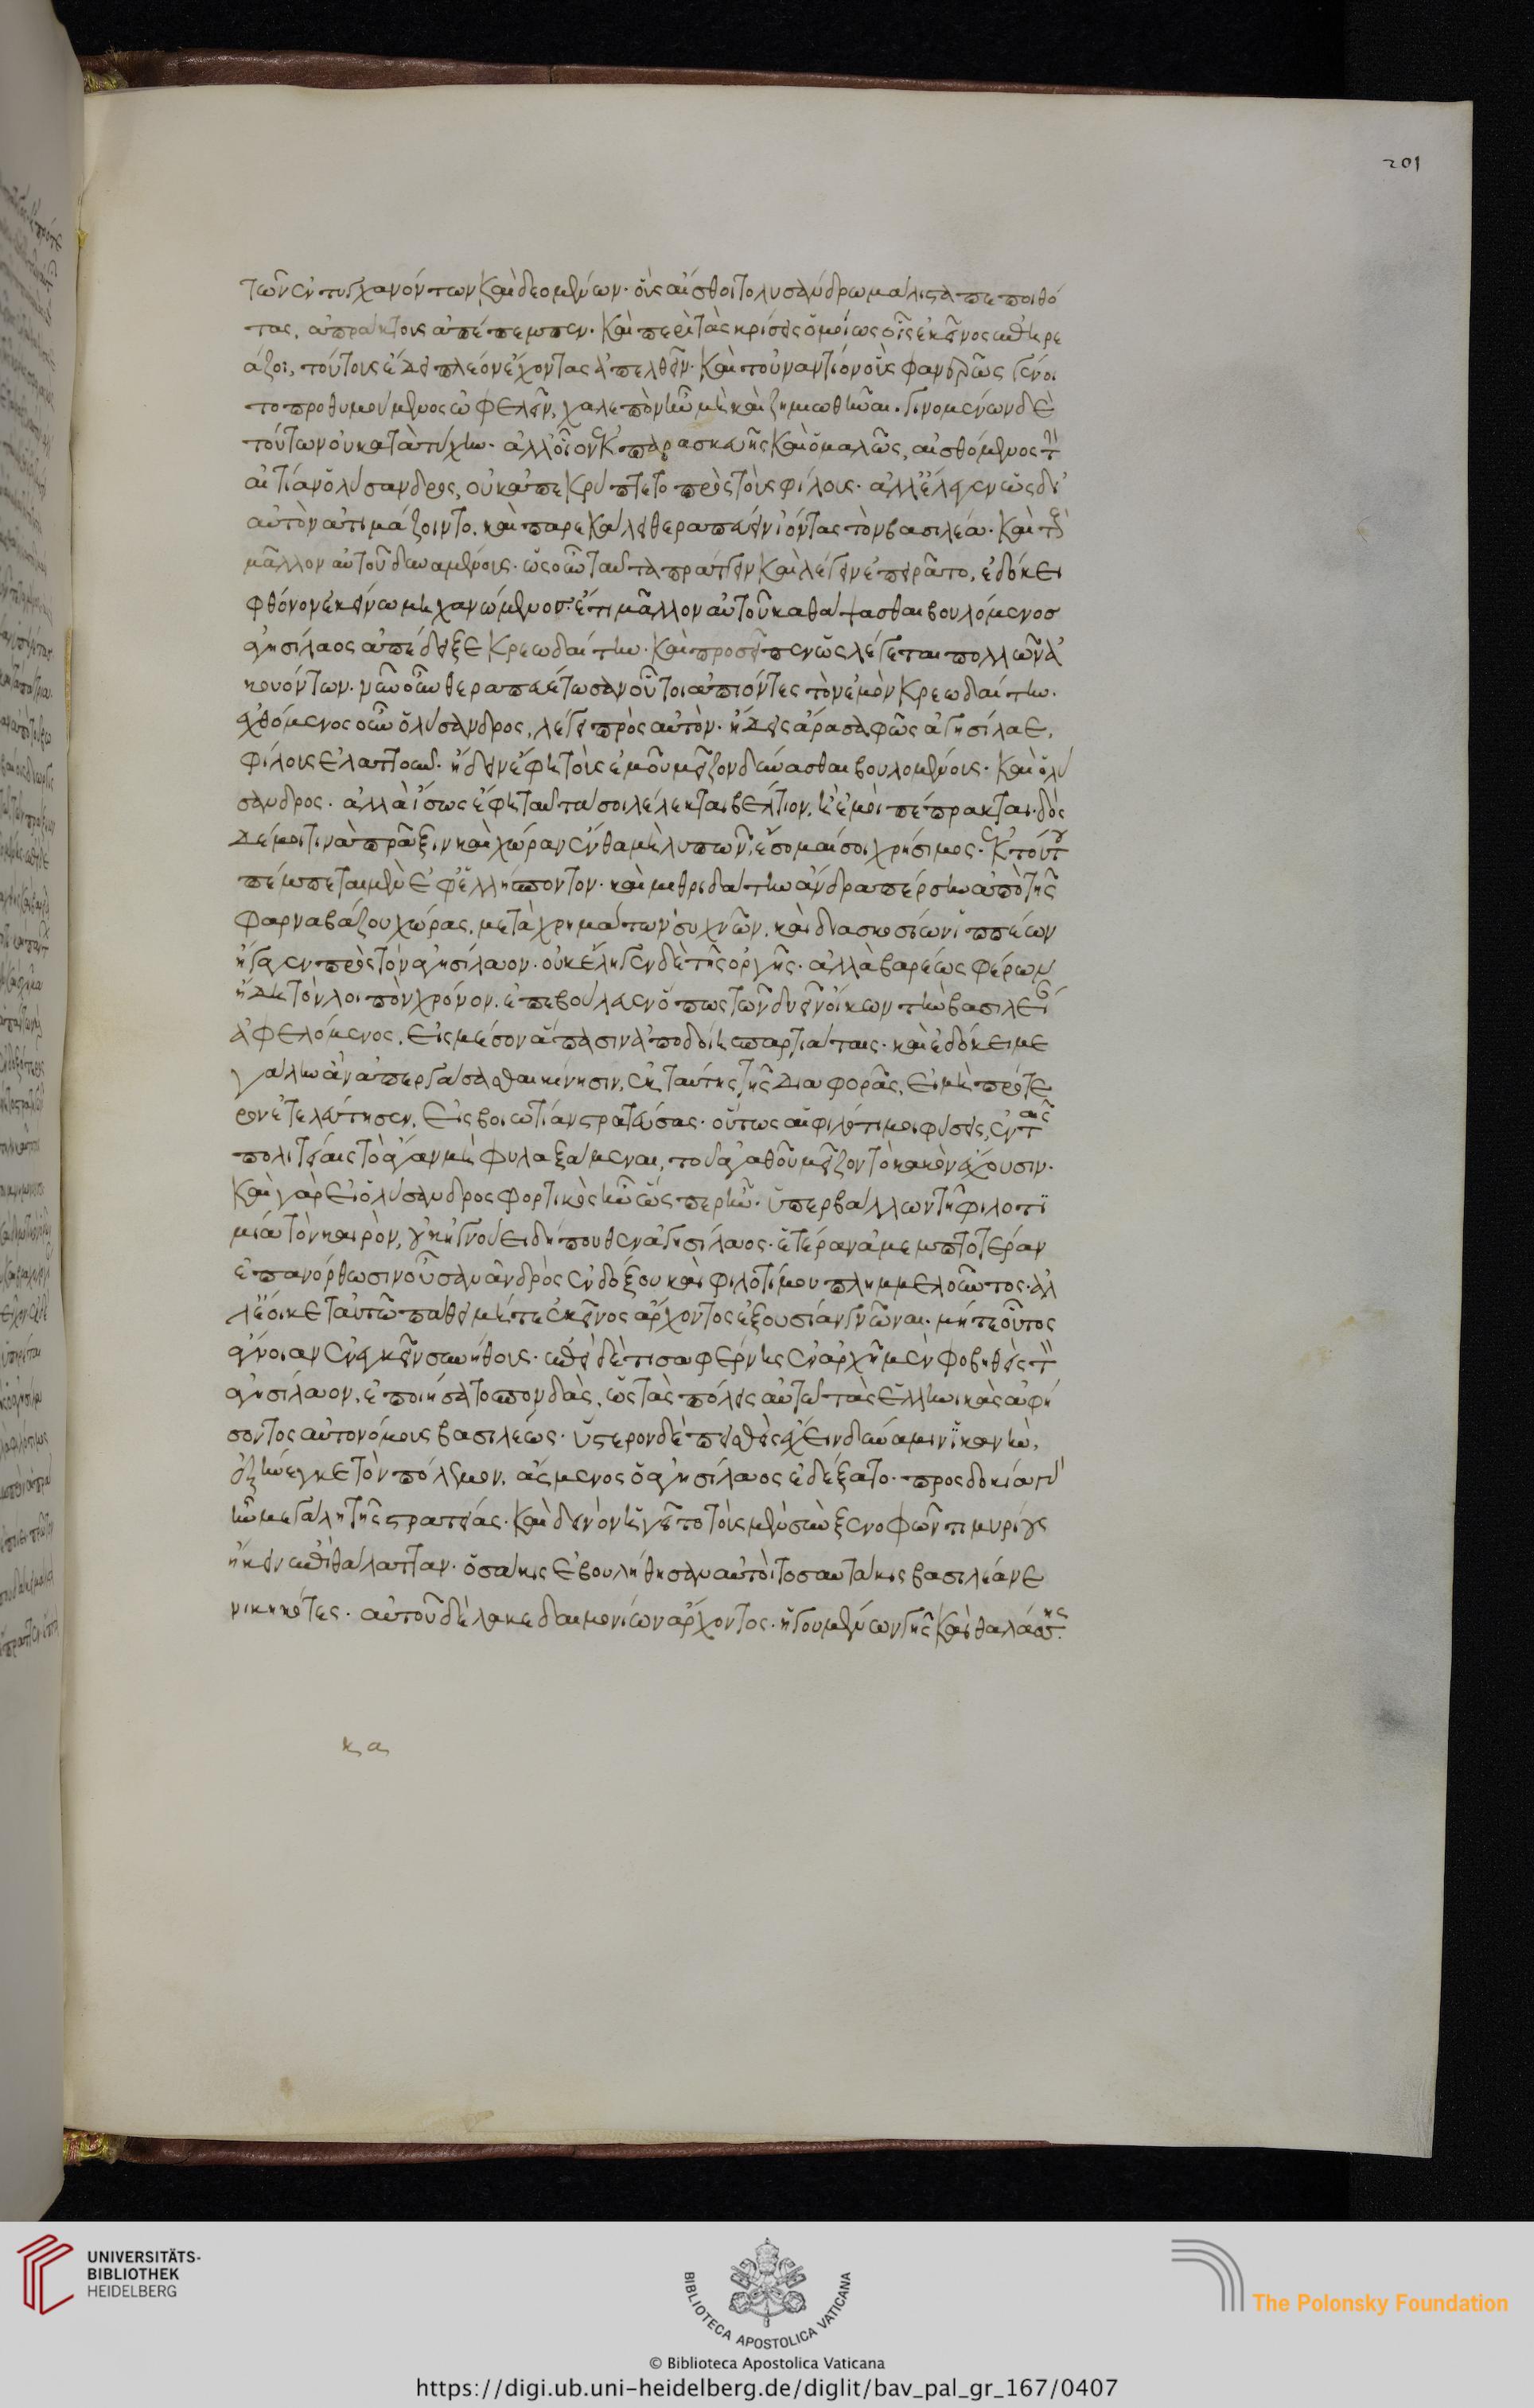 201
τῶν ἐντυγχανόντων καὶ δεομένων. οὓς αἴσθοιτο λυσάνδρω μάλιστα πεποιθό
τας, ἀπράκτους ἀπέπεμπεν. καὶ περὶ τὰς κρίσεις ὁμοίως οἷς ἐκεῖνος ἐπηρε
άζοι, τούτους ἔδει πλέον ἔχοντας ἀπελθεῖν. καὶ τοὐναντίον οὓς φανερῶς γένοι
το προθυμούμενος ὠφελεῖν, χαλεπὸν ἦν μὴ καὶ ζημιωθῆναι. γινομένων δὲ
τούτων οὐ κατὰ τύχην. ἀλλ' οἷον ἐκ παρασκευῆς καὶ ὁμαλῶς, αἰσθόμενος τὴν
αἰτίαν ὁ λύσανδρος, οὐκ ἀπεκρύπτετο πρὸς τοὺς φίλους. ἀλλ' ἔλεγεν ὡς δι'
αὐτὸν ἀτιμάζοιντο. καὶ παρεκάλει θεραπεύειν ἰόντας τὸν βασιλέα. καὶ τοὺς
μᾶλλον αὐτοῦ δυναμένους. ὡς οὖν ταῦτα πράττειν καὶ λέγειν ἐπειρᾶτο, ἐδόκει
φθόνον ἐκείνω μηχανώμενος. ἔτι μᾶλλον αὐτοῦ καθάψασθαι βουλόμενος
ἀγησίλαος ἀπέδειξε κρεωδαίτην. καὶ προσεῖπεν ὡς λέγεται πολλῶν ἀ
κουόντων. νῦν οὖν θεραπευέτωσαν οὗτοι ἀπιόντες τὸν ἐμὸν κρεωδαίτην.
ἀχθόμενος οὖν ὁ λύσανδρος, λέγει πρὸς αὐτὸν. ἤδεις ἄρα σαφῶς ἀγησίλαε,
φίλους ἐλαττοῦν. ἤδειν ἔφη τοὺς ἐμοῦ μεῖζον δύνασθαι βουλομένους. καὶ ὁ λύ
σανδρος. ἀλλὰ ἴσως ἔφη ταῦτα σοι λέλεκται βέλτιον, ἢ ἐμοὶ πέπρακται. δὸς
δέ μοι τινὰ πρᾶξιν καὶ χώραν ἔνθα μὴ λυπῶν, ἔσομαί σοι χρήσιμος. ἐκ τούτου
πέμπεται μὲν ἐφ' ἑλλήσποντον. καὶ μιθριδάτην ἄνδρα πέρσην ἀπὸ τῆς
φαρναβάζου χώρας, μετὰ χρημάτων συχνῶν, καὶ διακοσίων ἱππέων
ἤγαγεν πρὸς τὸν ἀγησίλαον. οὐκ ἔληγεν δὲ τῆς ὀργῆς. ἀλλὰ βαρέως φέρων
ἤδη τὸν λοιπὸν χρόνον. ἐπεβούλευεν ὅπως τῶν δυεῖν οἴκων τὴν βασιλείαν
ἀφελόμενος, εἰς μέσον ἅπασιν ἀποδοίη σπαρτιάταις. καὶ ἐδόκει με
γάλην ἂν ἀπεργάσασθαι κίνησιν, ἐκ ταύτης τῆς διαφορᾶς, εἰ μὴ πρότε
ρον ἐτελεύτησεν, εἰς βοιωτίαν στρατεύσας. οὕτως αἱ φιλότιμοι φύσεις, ἐν ταῖς
πολιτείαις τὸ ἄγαν μὴ φυλαξάμεναι, τοῦ ἀγαθοῦ μεῖζον τὸ κακὸν ἔχουσιν.
καὶ γὰρ εἰ ὁ λύσανδρος φορτικὸς ἦν ὥσπερ ἦν. ὑπερβάλλων τῇ φιλοτι
μία τὸν καιρὸν, ἠγνόει δήπουθεν ἀγησίλαος. ἑτέραν ἀμεμπτοτέραν
ἐπανόρθωσιν οὖσαν ἀνδρὸς ἐνδόξου καὶ φιλοτίμου πλημμελοῦντος. ἀλ
λ' ἔοικε ταὐτῶ παθεῖν μήτε ἐκεῖνος ἄρχοντος ἐξουσίαν γνῶναι. μήτε οὗτος
ἄγνοιαν ἐνεγκεῖν συνήθους. ἐπεὶ δὲ τισαφέρνης ἐν ἀρχῇ μὲν φοβηθεὶς τὸν
ἀγησίλαον, ἐποιήσατο σπονδὰς, ὡς τὰς πόλεις αὐτῶ τὰς ἑλληνικὰς ἀφή
σοντος αὐτονόμους βασιλέως. ὕστερον δὲ πεισθεὶς ἔχειν δύναμιν ἱκανὴν,
ἐξήνεγκε τὸν πόλεμον, ἄσμενος ὁ ἀγησίλαος ἐδέξατο. προσδοκία γὰρ
ἦν μεγάλη τῆς στρατείας. καὶ δεινὸν ἡγεῖτο τοὺς μὲν σὺν ξενοφῶντι μυρίους
ἥκειν ἐπὶ θάλατταν. ὁσάκις ἐβουλήθησαν αὐτοὶ τοσαυτάκις βασιλέα νε
νικηκότες. αὐτοῦ δὲ λακεδαιμονίων ἄρχοντος. ἡγουμένων γῆς καὶ θαλάσσης.
UNIVERSITÄTS-
BIBLIOTHEK
HEIDELBERG
BIBLIOTECA APOSTOLICA VATICANA
The Polonsky Foundation
© Biblioteca Apostolica Vaticana
https://digi.ub.uni-heidelberg.de/diglit/bav_pal_gr_167/0407